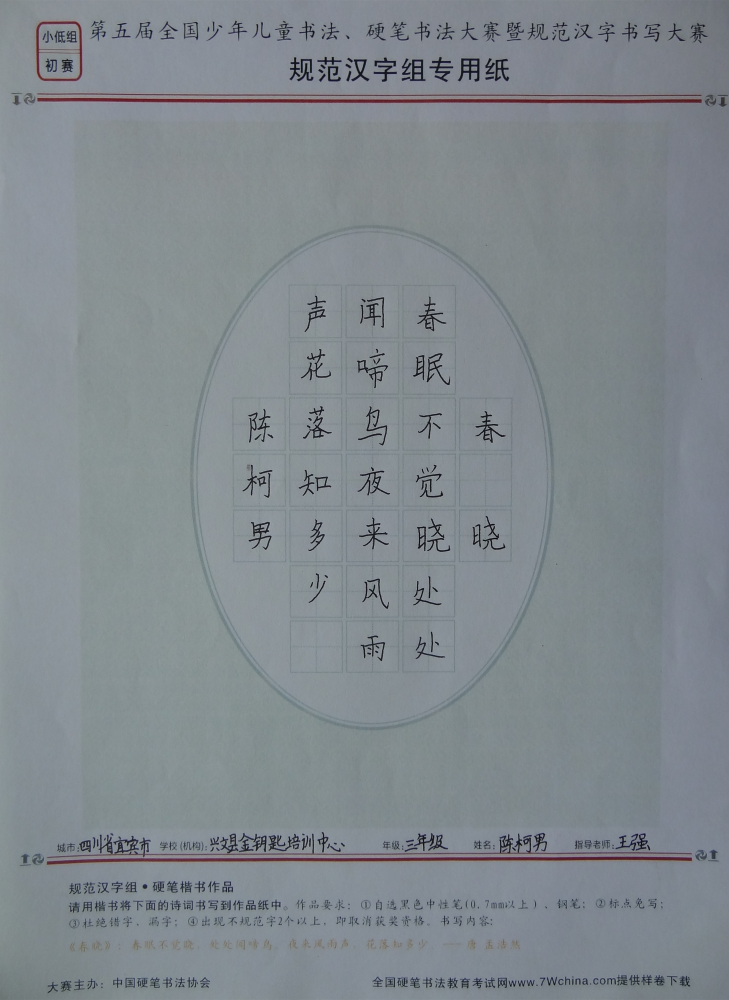 小低组
初赛
第五届全国少年儿童书法、硬笔书法大赛暨规范汉字书写大赛
规范汉字组专用纸
春晓
春眠不觉晓处处
闻啼鸟夜来风雨
声花落知多少
陈柯男
城市:四川省宜宾市 学校(机构):兴文县金钥匙培训中心 年级:三年级 姓名:陈柯男 指导老师:王强
规范汉字组•硬笔楷书作品
请用楷书将下面的诗词书写到作品纸中。作品要求:①自选黑色中性笔(0.7mm以上)、钢笔;②标点免写;
③杜绝错字、漏字;④出现不规范字2个以上,即取消获奖资格。书写内容:
《春晓》:春眠不觉晓,处处闻啼鸟。夜来风雨声,花落知多少。——唐 孟浩然
大赛主办:中国硬笔书法协会 全国硬笔书法教育考试网www.7Wchina.com提供样卷下载